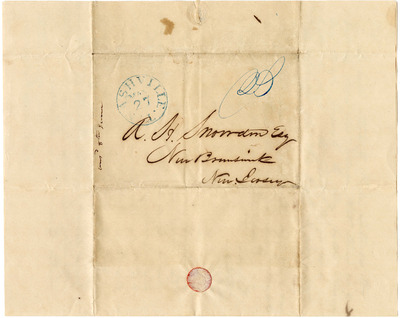 ASHVILLE
27
A. H. Snowdon Esq
New Brunswick
New Jersey